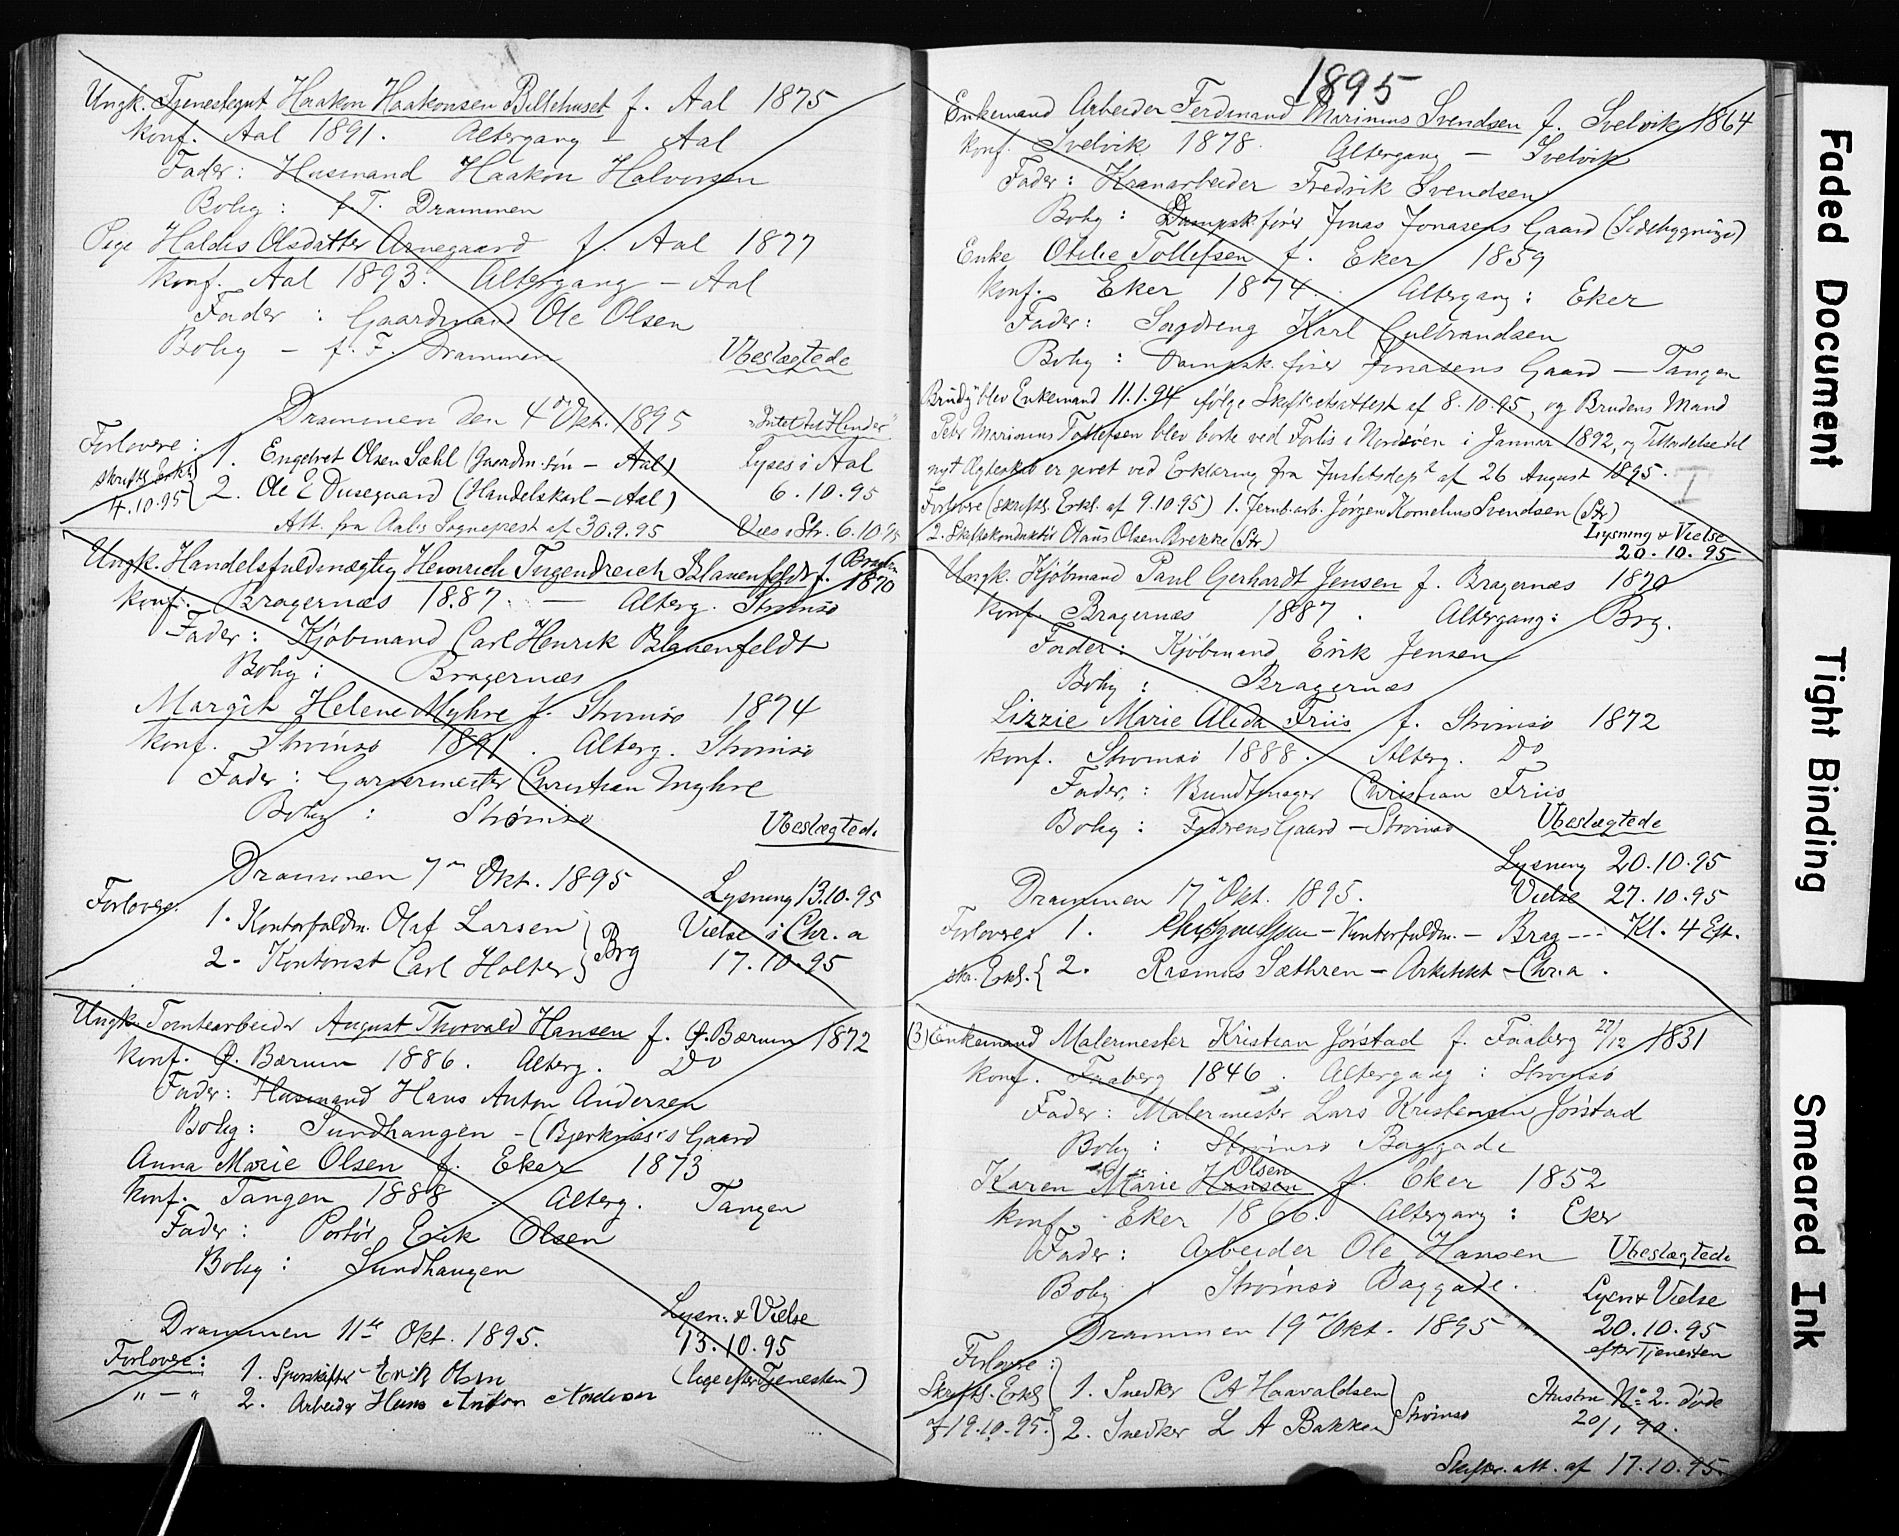 Ungk. Tjenestegut Haakon Haakonsen Billehuset f. Aal 1875
konf. Aal 1891. Altergang – Aal
Fader: Husmand Haakon Halvorsen
Bolig: f. T. Drammen
Pige Haldis Olsdatter Arnegaard f. Aal 1877
konf. Aal 1893. Altergang – Aal
Fader: Gaardmand Ole Olsen
Bolig – f. T. Drammen
Ubeslægtede
Drammen den 4 Okt. 1895
"Intet til Hinder"
Forlovere: 1. Engebret Olsen Sæhl (Gaardm. søn – Aal)
Lyses i Aal
skriftl. Erkl. 4.10.95 2. Ole E Dusegaard (Handelskarl – Aal)
6.10.95
Att. fra Aals Sogneprest af 30.9.95
Vies i Str. 6.10.95
Ungk. Handelsfuldmægtig Heinrich Tugendreich Blauenfeldt f. Brag 1870
konf. Bragernæs 1887. – Alterg. Strømsø
Fader: Kjøbmand Carl Henrik Blauenfeldt
Bolig: Bragernæs
Margit Helene Myhre f. Strømsø 1874
konf. Strømsø 1891. Alterg. Strømsø
Fader: Garvermester Christian Myhre
Bolig: Strømsø
Ubeslægtede
Drammen 7 Okt. 1895
Lysning 13.10.95
Forlovere 1. Kontorfuldm. Olaf Larsen
Vielse i Chr.a
2. Kontorist Carl Holter } Brg
17.10.95
Ungk. Tomtearbeider August Thorvald Hansen f. Ø. Bærum 1872
konf. Ø. Bærum 1886. Alterg. Do
Fader: Husmand Hans Anton Andersen
Bolig: Sundhaugen – (Bjerknæs's Gaard
Anna Marie Olsen f. Eker 1873
konf. Tangen 1888. Alterg. Tangen
Fader: Portør Erik Olsen
Bolig: Sundhaugen
Lysn. & Vielse
Drammen 11te Okt. 1895.
13.10.95
Forlovere: 1. Sporskifter Erik Olsen
(lige efter Tjenesten)
" – " 2. Arbeider Hans Anton Andersen
1895
Enkemand Arbeider Ferdinand Marinius Svendsen f. Svelvik 1864
konf. Svelvik 1878. Altergang – Svelvik
Fader: Kranarbeider Fredrik Svendsen
Bolig: Dampsk.fører Jonas Jonasens Gaard (Sidebygning)
Enke Otilie Tollefsen f. Eker 1859
konf. Eker 1874. Altergang: Eker
Fader: Sagdreng Karl Gulbrandsen
Bolig: Dampsk.fører Jonasens Gaard – Tangen
Brudg. blev Enkemand 11.1.94 ifølge Skifteretsattest af 8.10.95, og Brudens Mand
Peter Marinius Tollefsen blev borte ved Forlis i Nordsøen i Januar 1892, og Tilladelse til
nyt Ægteskab er givet ved Erklæring fra Justitsdept af 26 August 1895.
Forlovere (skriftl. Erkl. af 9.10.95) 1. Jernb.arb. Jørgen Kornelius Svendsen (Str)
2. Skiftekonduktør Olaus Olsen Brekke (Str)
Lysning & Vielse
20.10.95
Ungk. Kjøbmand Paul Gerhardt Jensen f. Bragernæs 1870
konf. Bragernæs 1887. Altergang: Brg.
Fader: Kjøbmand Erik Jensen
Bolig: Bragernæs
Lizzie Marie Alida Friis f. Strømsø 1872
konf. Strømsø 1888. Alterg. Do
Fader: Bundtmager Christian Friis
Bolig: Faderens Gaard – Strømsø
Ubeslægtede
Lysning 20.10.95
Drammen 17 Okt. 1895.
Vielse 27.10.95
Forlovere 1. – Kontorfuldm. – Brag – Kl. 4 Eft.
skr. Erkl. { 2. Rasmus Sæthren – Arkitekt – Chr.a.
(3) Enkemand Malermester Kristian Jørstad f. Faaberg 27/12 1831
konf. Faaberg 1846. Altergang: Strømsø
Fader: Malermester Lars Kristensen Jørstad
Bolig: Strømsø Baggade
Karen Marie Hansen Olsen f. Eker 1852
konf. Eker 1866. Altergang: Eker
Fader: Arbeider Ole Hansen
Ubeslægtede
Bolig: Strømsø Baggade.
Lysn & Vielse
Drammen 19 Okt. 1895
20.10.95
efter Tjenesten
Forlovere:
Skriftl. Erkl. 1. Snedker C A Haavaldsen
Hustru No 2. døde
af 19.10.95. 2. Snedker L A Bakken } Strømsø
20/1 90.
Skifter. att. af 17.10.95.
Faded Document
Tight Binding
Smeared Ink